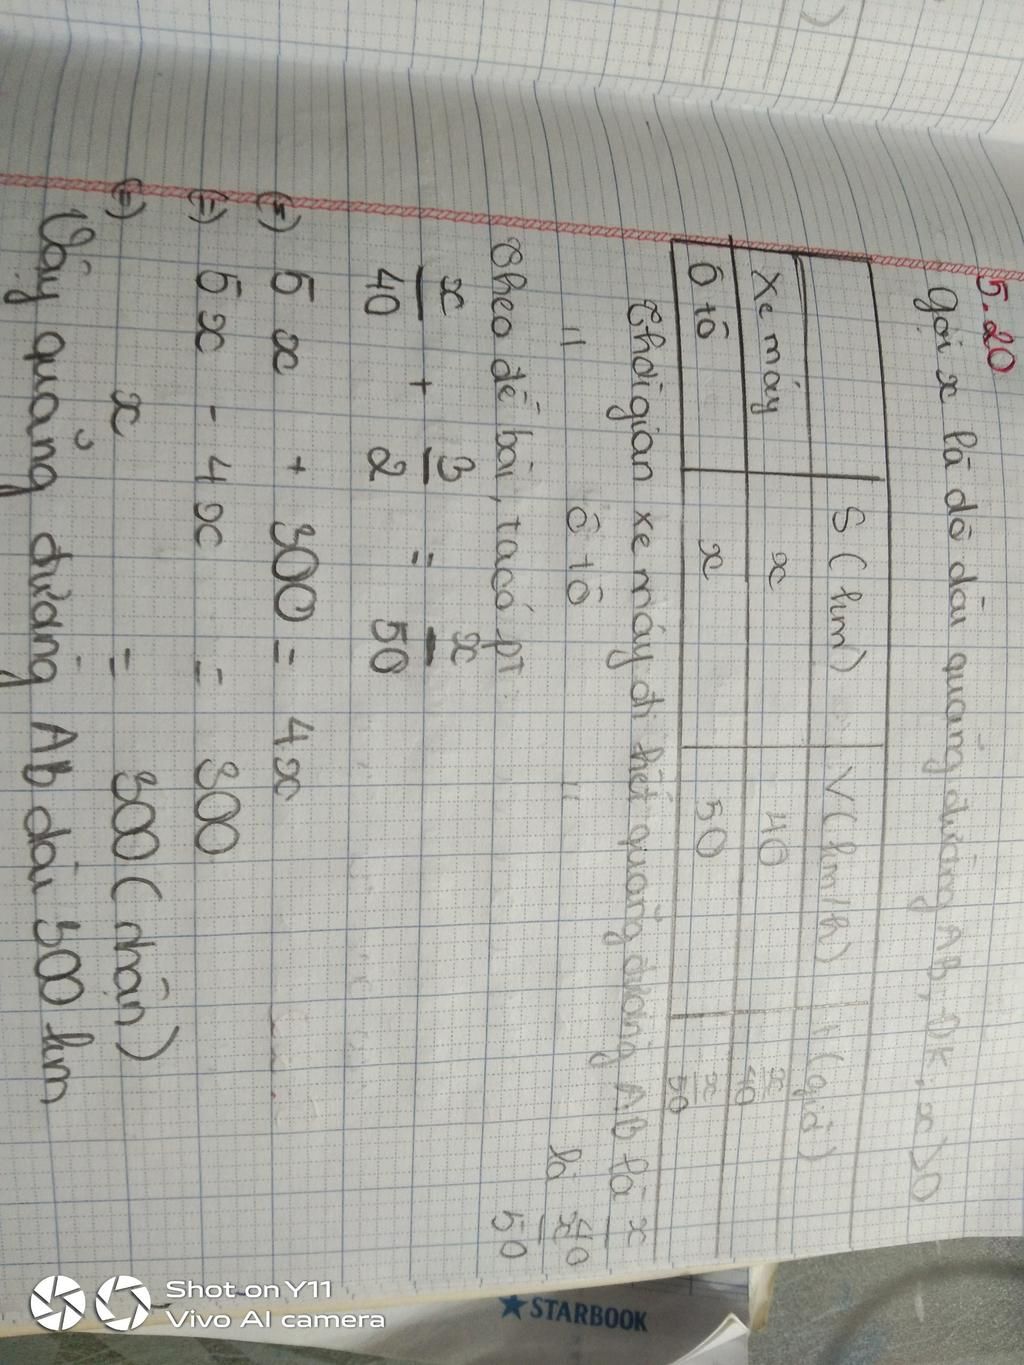 5.20
Gọi x là độ dài quãng đường AB, ĐK: x>0
S (km) V (km/h) t (giờ)
Xe máy x 40 x/40
Ô tô x 50 x/50
Thời gian xe máy đi hết quãng đường AB là x/40
" ô tô " là x/50
Theo đề bài, ta có pt:
x/40 + 3/2 = x/50
(=) 5x + 300 = 4x
(=) 5x - 4x = 300
(=) x = 300 (nhận)
Vậy quãng đường AB dài 300 km
STARBOOK
Shot on Y11
Vivo AI camera